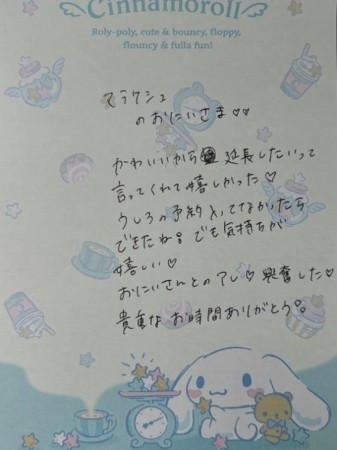 Cinnamoroll
Roly-poly, cute & bouncy, floppy,
flouncy & fulla fun!
マラケシュ
のおにいさま♡♡
かわいいから 延長したいって
言ってくれて嬉しかった♡
うしろの予約入ってなかったら
できたね。でも気持ちが
嬉しい♡
おにいさんとのアレ♡興奮した♡
貴重な お時間ありがとう。